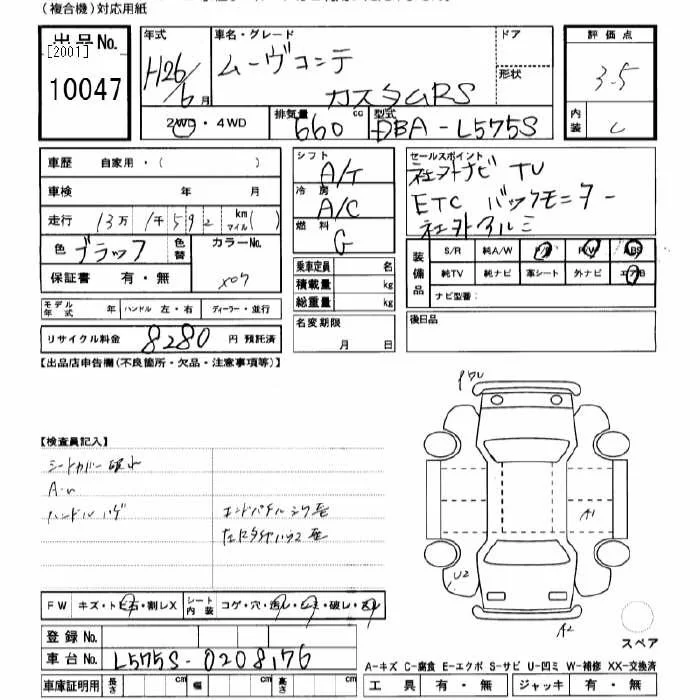 （複合機）対応用紙
出品No.
[2001]
10047
年式
H26/6月
車名・グレード
ムーヴコンテ
カスタムRS
ドア
形状
2WD・4WD
排気量 660 cc
型式 DBA-L575S
評価点
3.5
内装 C
車歴 自家用・( )
車検 年 月
走行 13万 1千592 km マイル( )
色 ブラック 色替
カラーNo. X07
保証書 有・無
モデル年式 年 ハンドル 左・右 ディーラー・並行
リサイクル料金 8280 円 預託済
シフト A/T
冷房 A/C
燃料 G
乗車定員 名
積載量 kg
総重量 kg
名変期限
月 日
セールスポイント
社外ナビ TV
ETC バックモニター
社外アルミ
装備品
S/R 純A/W P/S P/W ABS
純TV 純ナビ 革シート 外ナビ エアB
ナビ型番：
後日品
【出品店申告欄(不良箇所・欠品・注意事項等)】
【検査員記入】
シートカバー破れ
ハンドルハゲ
A1
U2
A2
FW キズ・トビ石・割レX
シート内装 コゲ・穴・汚レ・シミ・破レ・スレ
登録No.
車台No. L575S-0208176
車庫証明用 長さ cm 幅 cm 高さ cm
スペア
A-キズ C-腐食 E-エクボ S-サビ U-凹ミ W-補修 XX-交換済
工具 有・無 ジャッキ 有・無